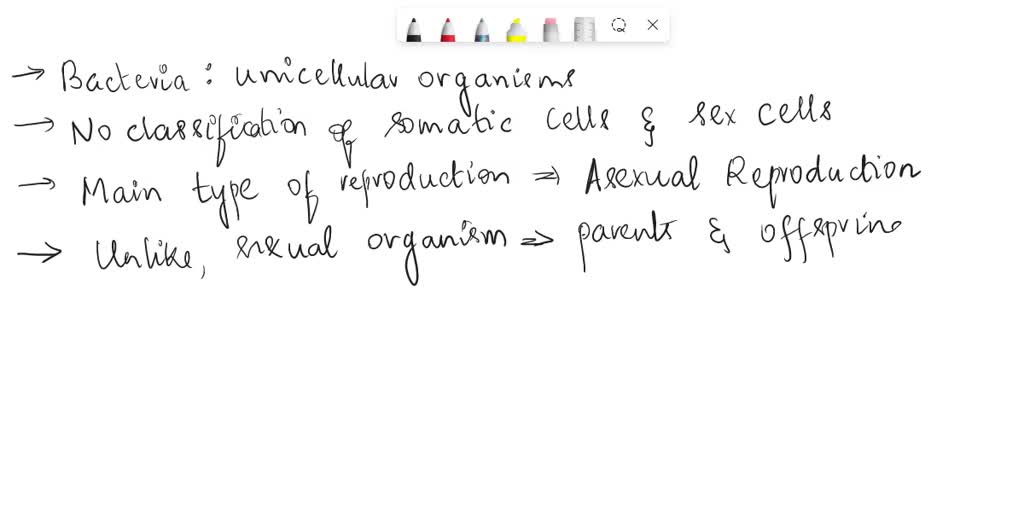 → Bacteria : unicellular organisms
→ No classification of somatic cells & sex cells
→ Main type of reproduction ⇒ Asexual Reproduction
→ Unlike, sexual organism ⇒ parents & offspring